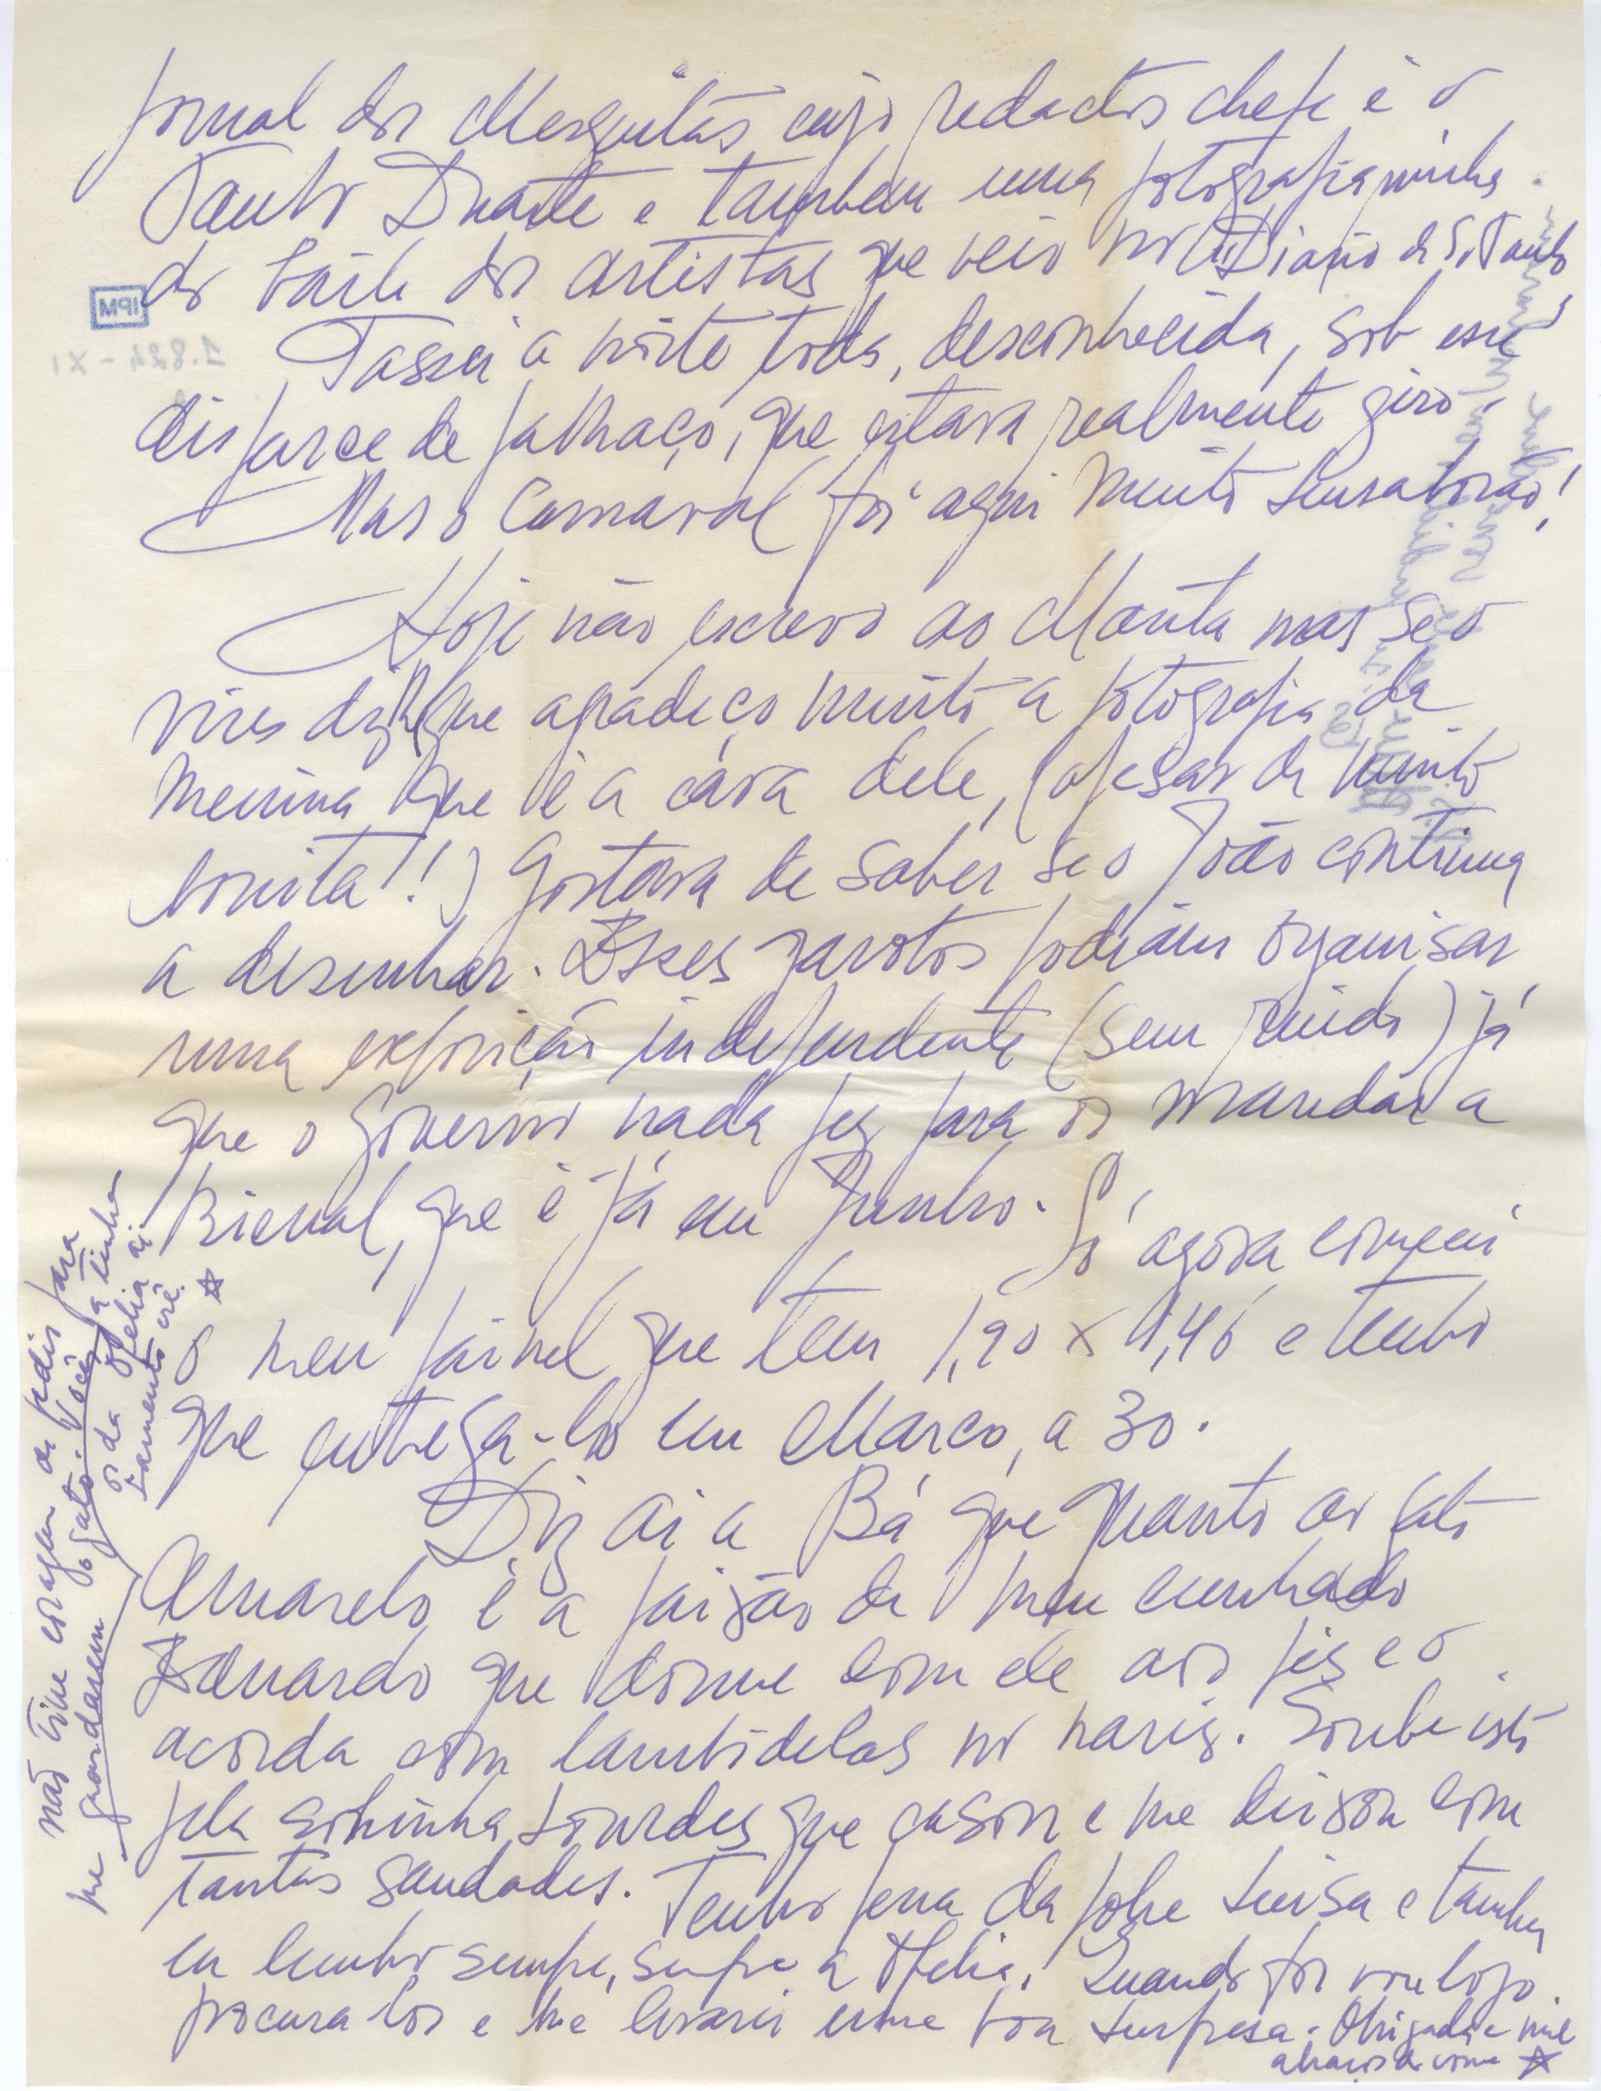 jornal dos Mesquitas cujo redactor chefe é o
Paulo Duarte e tambem uma fotografia minha
do baile dos artistas que veio no Diario de S. Paulo
Passei a noite toda, desconhecida, sob esse
disfarce de palhaço, que estava realmente giro.
Mas o Carnaval foi aqui muito sensaborão!
Hoje não escrevo ao Manta mas se o
vires diz que agradeço muito a fotografia da
menina que é a cára dele, (apesar de muito
bonita!!) Gostava de saber se o João continua
a desenhar. Esses garotos podiam organisar
uma exposição independente (sem juidi) já
que o Governo nada fez para os mandar a
Bienal, que é já em Junho. Só agora comecei
o meu painel que tem 1,90 x 1,46 e tenho
que entrega-lo em Março, a 30.
Diz ai a Bá que quanto ao gato
Amarelo é a paixão de meu cunhado
Eduardo que dorme com ele aos pés e o
acorda com lambidelas no nariz. Soube isto
pela sobrinha Lourdes que casou e me deixou com
tantas saudades. Tenho pena da pobre Luisa e tambem
eu lembro sempre, sempre a Ofelia. Quando for vou logo
procura-los e lhe levarei uma boa surpresa. Obrigada e mil
abraços da
não tive coragem de pedir para
me guardarem o gato. Você já tinha
o da Ofelia ai
IPM
1.824 - XI